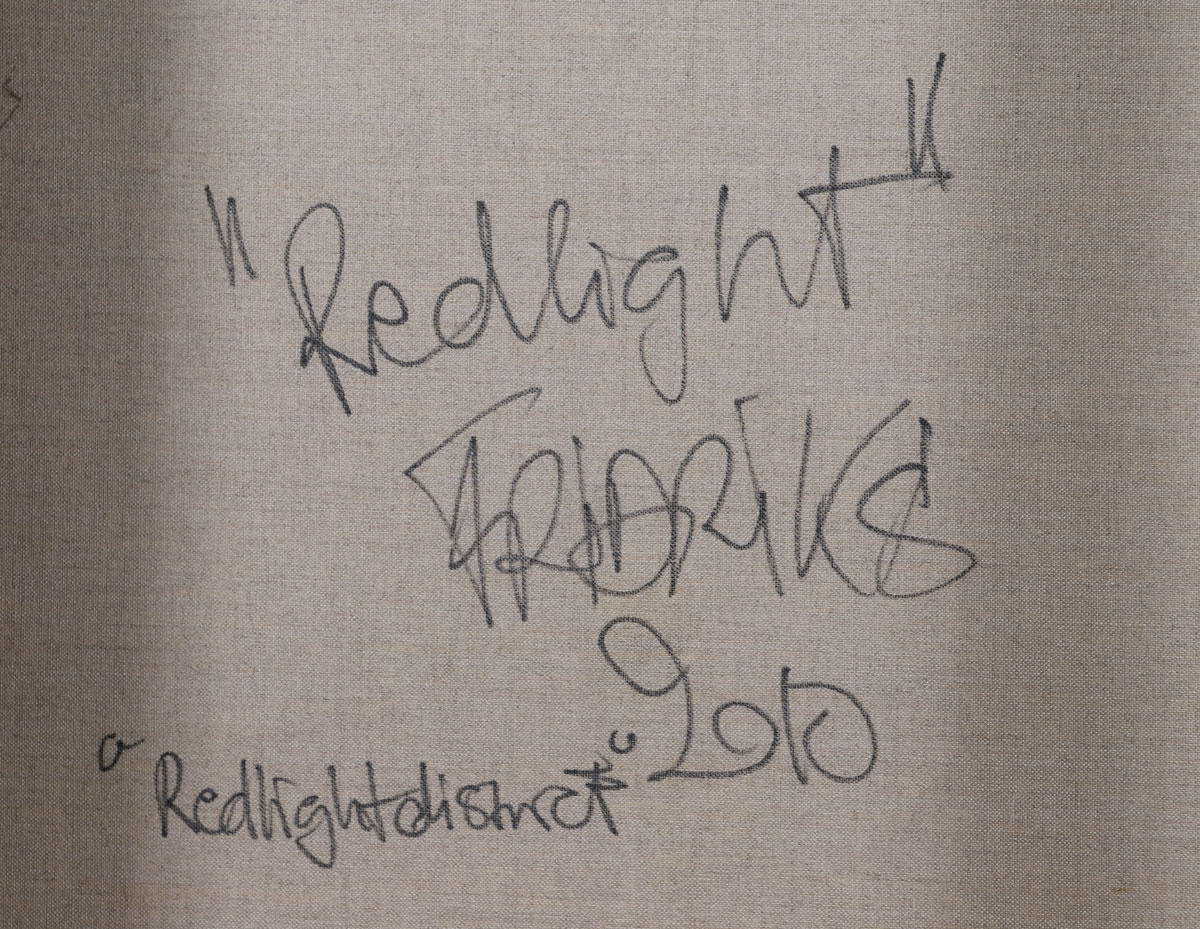 "Redlight"
FRIDRIKS
2010
"Redlightdistrict"